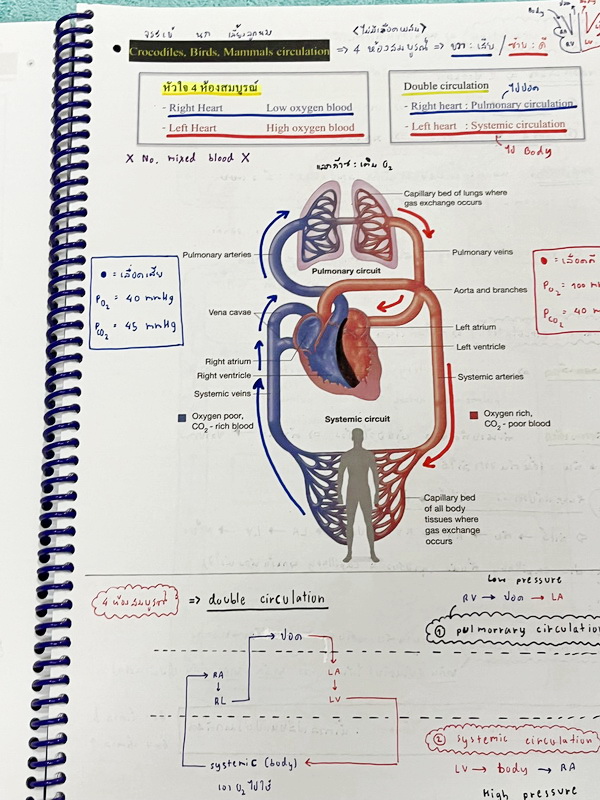 จระเข้ นก เลี้ยงลูกนม
<ไม่มีเลือดผสม>
Crocodiles, Birds, Mammals circulation => 4 ห้องสมบูรณ์ => ขวา : เสีย / ซ้าย : ดี
Body
RV LV
หัวใจ 4 ห้องสมบูรณ์
- Right Heart Low oxygen blood
- Left Heart High oxygen blood
Double circulation
ไปปอด
- Right heart : Pulmonary circulation
- Left heart : Systemic circulation
ไป Body
X No. mixed blood X
แลกก๊าซ : เติม O2
Capillary bed of lungs where
gas exchange occurs
Pulmonary arteries
Pulmonary veins
Pulmonary circuit
= เลือดเสีย
PO2 = 40 mmHg
PCO2 = 45 mmHg
= เลือดดี
PO2 = 100
PCO2 = 40 m
Aorta and branches
Vena cavae
Left atrium
Left ventricle
Right atrium
Right ventricle
Systemic veins
Systemic arteries
Oxygen poor,
CO2 - rich blood
Systemic circuit
Oxygen rich,
CO2 - poor blood
Capillary bed
of all body
tissues where
gas exchange
occurs
4 ห้องสมบูรณ์ => double circulation
Low pressure
RV → ปอด → LA
① pulmonrary circulation
ปอด
RA
LA
RL
LV
systemic (body)
เอา O2 ไปใช้
② systemic circulation
LV → body → RA
High pressure